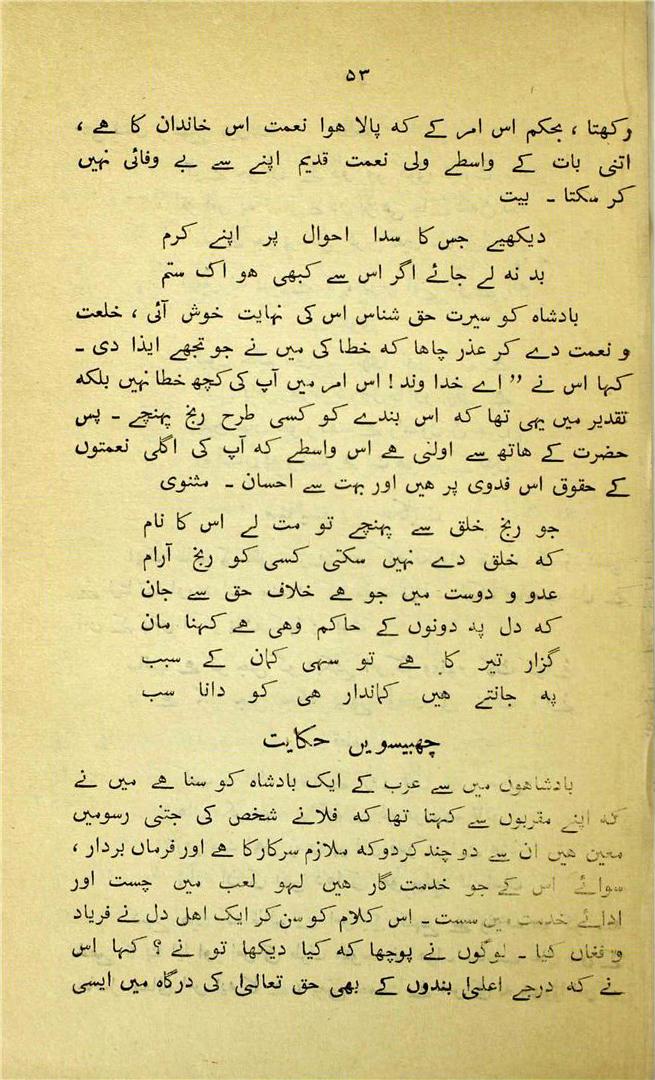 ۵۳
رکھتا ، بحکم اس امر کے کہ پالا ہوا نعمت اس خاندان کا ہے ،
اتنی بات کے واسطے ولی نعمت قدیم اپنے سے بے وفائی نہیں
کر سکتا ۔ بیت
دیکھیے جس کا سدا احوال پر اپنے کرم
بد نہ لے جائے اگر اس سے کبھی ہو اک ستم
بادشاہ کو سیرت حق شناس اس کی نہایت خوش آئی ، خلعت
و نعمت دے کر عذر چاہا کہ خطا کی میں نے جو تجھے ایذا دی ۔
کہا اس نے ”اے خدا وند ! اس امر میں آپ کی کچھ خطا نہیں بلکہ
تقدیر میں یہی تھا کہ اس بندے کو کسی طرح رنج پہنچے ۔ پس
حضرت کے ہاتھ سے اولیٰ ہے اس واسطے کہ آپ کی اگلی نعمتوں
کے حقوق اس فدوی پر ہیں اور بہت سے احسان ۔ مثنوی
جو رنج خلق سے پہنچے تو مت لے اس کا نام
کہ خلق دے نہیں سکتی کسی کو رنج آرام
عدو و دوست میں جو ہے خلاف حق سے جان
کہ دل یہ دونوں کے حاکم وہی ہے کہنا مان
گزار تیر کا ہے تو سہی کمان کے سبب
یہ جانتے ہیں کماندار ہی کو دانا سب
چھبیسویں حکایت
بادشاہوں میں سے عرب کے ایک بادشاہ کو سنا ہے میں نے
کہ اپنے مقربوں سے کہتا تھا کہ فلانے شخص کی جتنی رسومیں
معین ہیں ان سے دو چند کردو کہ ملازم سرکار کا ہے اور فرماں بردار ،
سوائے اس کے جو خدمت گار ہیں لہو لعب میں چست اور
ادائے خدمت میں سست ۔ اس کلام کو سن کر ایک اہل دل نے فریاد
و فغاں کیا ۔ لوگوں نے پوچھا کہ کیا دیکھا تو نے ؟ کہا اس
نے کہ درجے اعلیٰ بندوں کے بھی حق تعالیٰ کی درگاہ میں ایسی